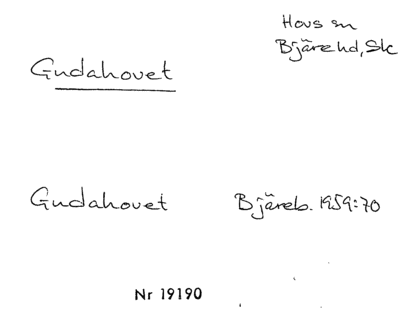 Hovs sn
Bjäre hd, Sk
Gudahovet
Gudahovet Bjäreb. 1959:70
Nr 19190